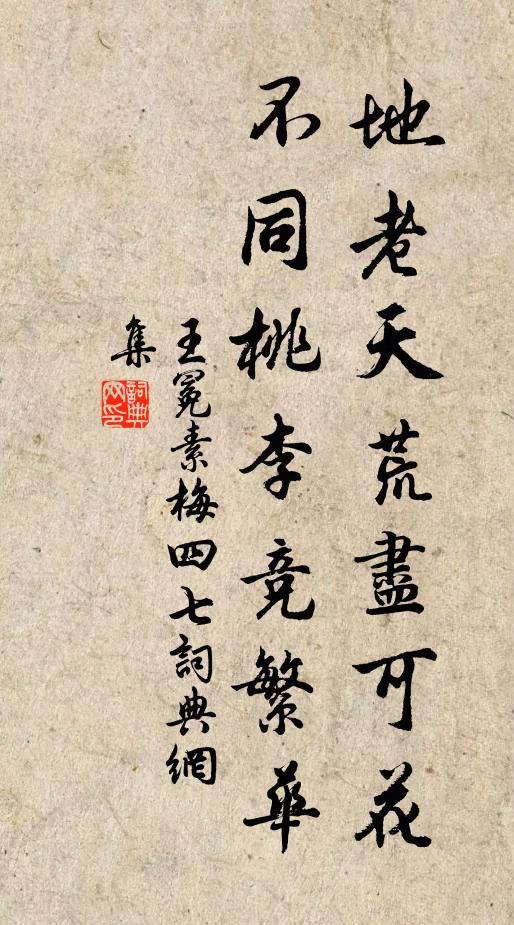 地老天荒盡可花
不同桃李竞繁華
王冕素梅四七詞典網
集
詞典
网印